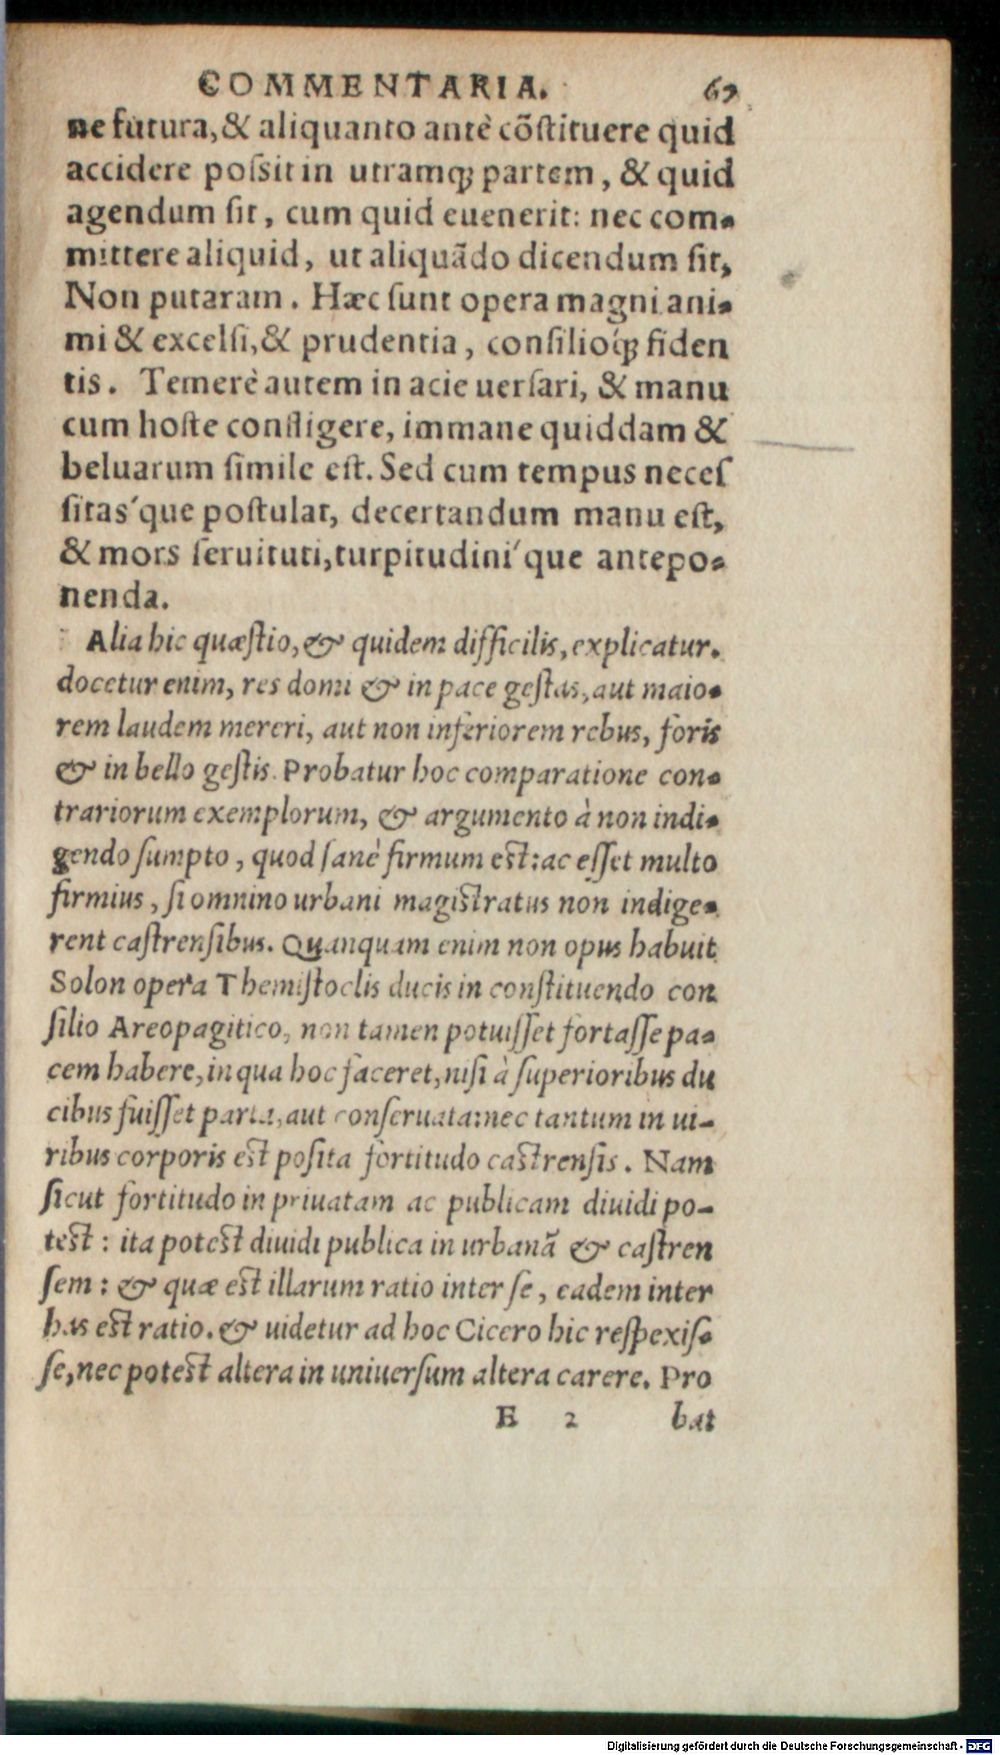 COMMENTARIA. 67
ne futura, & aliquanto antè cõstituere quid
accidere possit in utramq; partem, & quid
agendum sit, cum quid euenerit: nec com-
mittere aliquid, ut aliquãdo dicendum sit,
Non putaram. Hæc sunt opera magni ani-
mi & excelsi, & prudentia, consilioq́; fiden
tis. Temerè autem in acie uersari, & manu
cum hoste confligere, immane quiddam &
beluarum simile est. Sed cum tempus neces
sitas'que postulat, decertandum manu est,
& mors seruituti, turpitudini'que antepo-
nenda.
Alia hic quæstio, & quidem difficilis, explicatur.
docetur enim, res domi & in pace gestas, aut maio-
rem laudem mereri, aut non inferiorem rebus, foris
& in bello gestis. Probatur hoc comparatione con-
trariorum exemplorum, & argumento à non indi-
gendo sumpto, quod sanè firmum est: ac esset multo
firmius, si omnino urbani magistratus non indige-
rent castrensibus. Quanquam enim non opus habuit
Solon opera Themistoclis ducis in constituendo con
silio Areopagitico, non tamen potuisset fortasse pa-
cem habere, in qua hoc faceret, nisi à superioribus du
cibus fuisset parta, aut conseruata: nec tantum in ui-
ribus corporis est posita fortitudo castrensis. Nam
sicut fortitudo in priuatam ac publicam diuidi po-
test: ita potest diuidi publica in urbanã & castren
sem: & quæ est illarum ratio inter se, eadem inter
has est ratio. & uidetur ad hoc Cicero hic respexis-
se, nec potest altera in uniuersum altera carere. Pro
E 2 bat
Digitalisierung gefördert durch die Deutsche Forschungsgemeinschaft - DFG